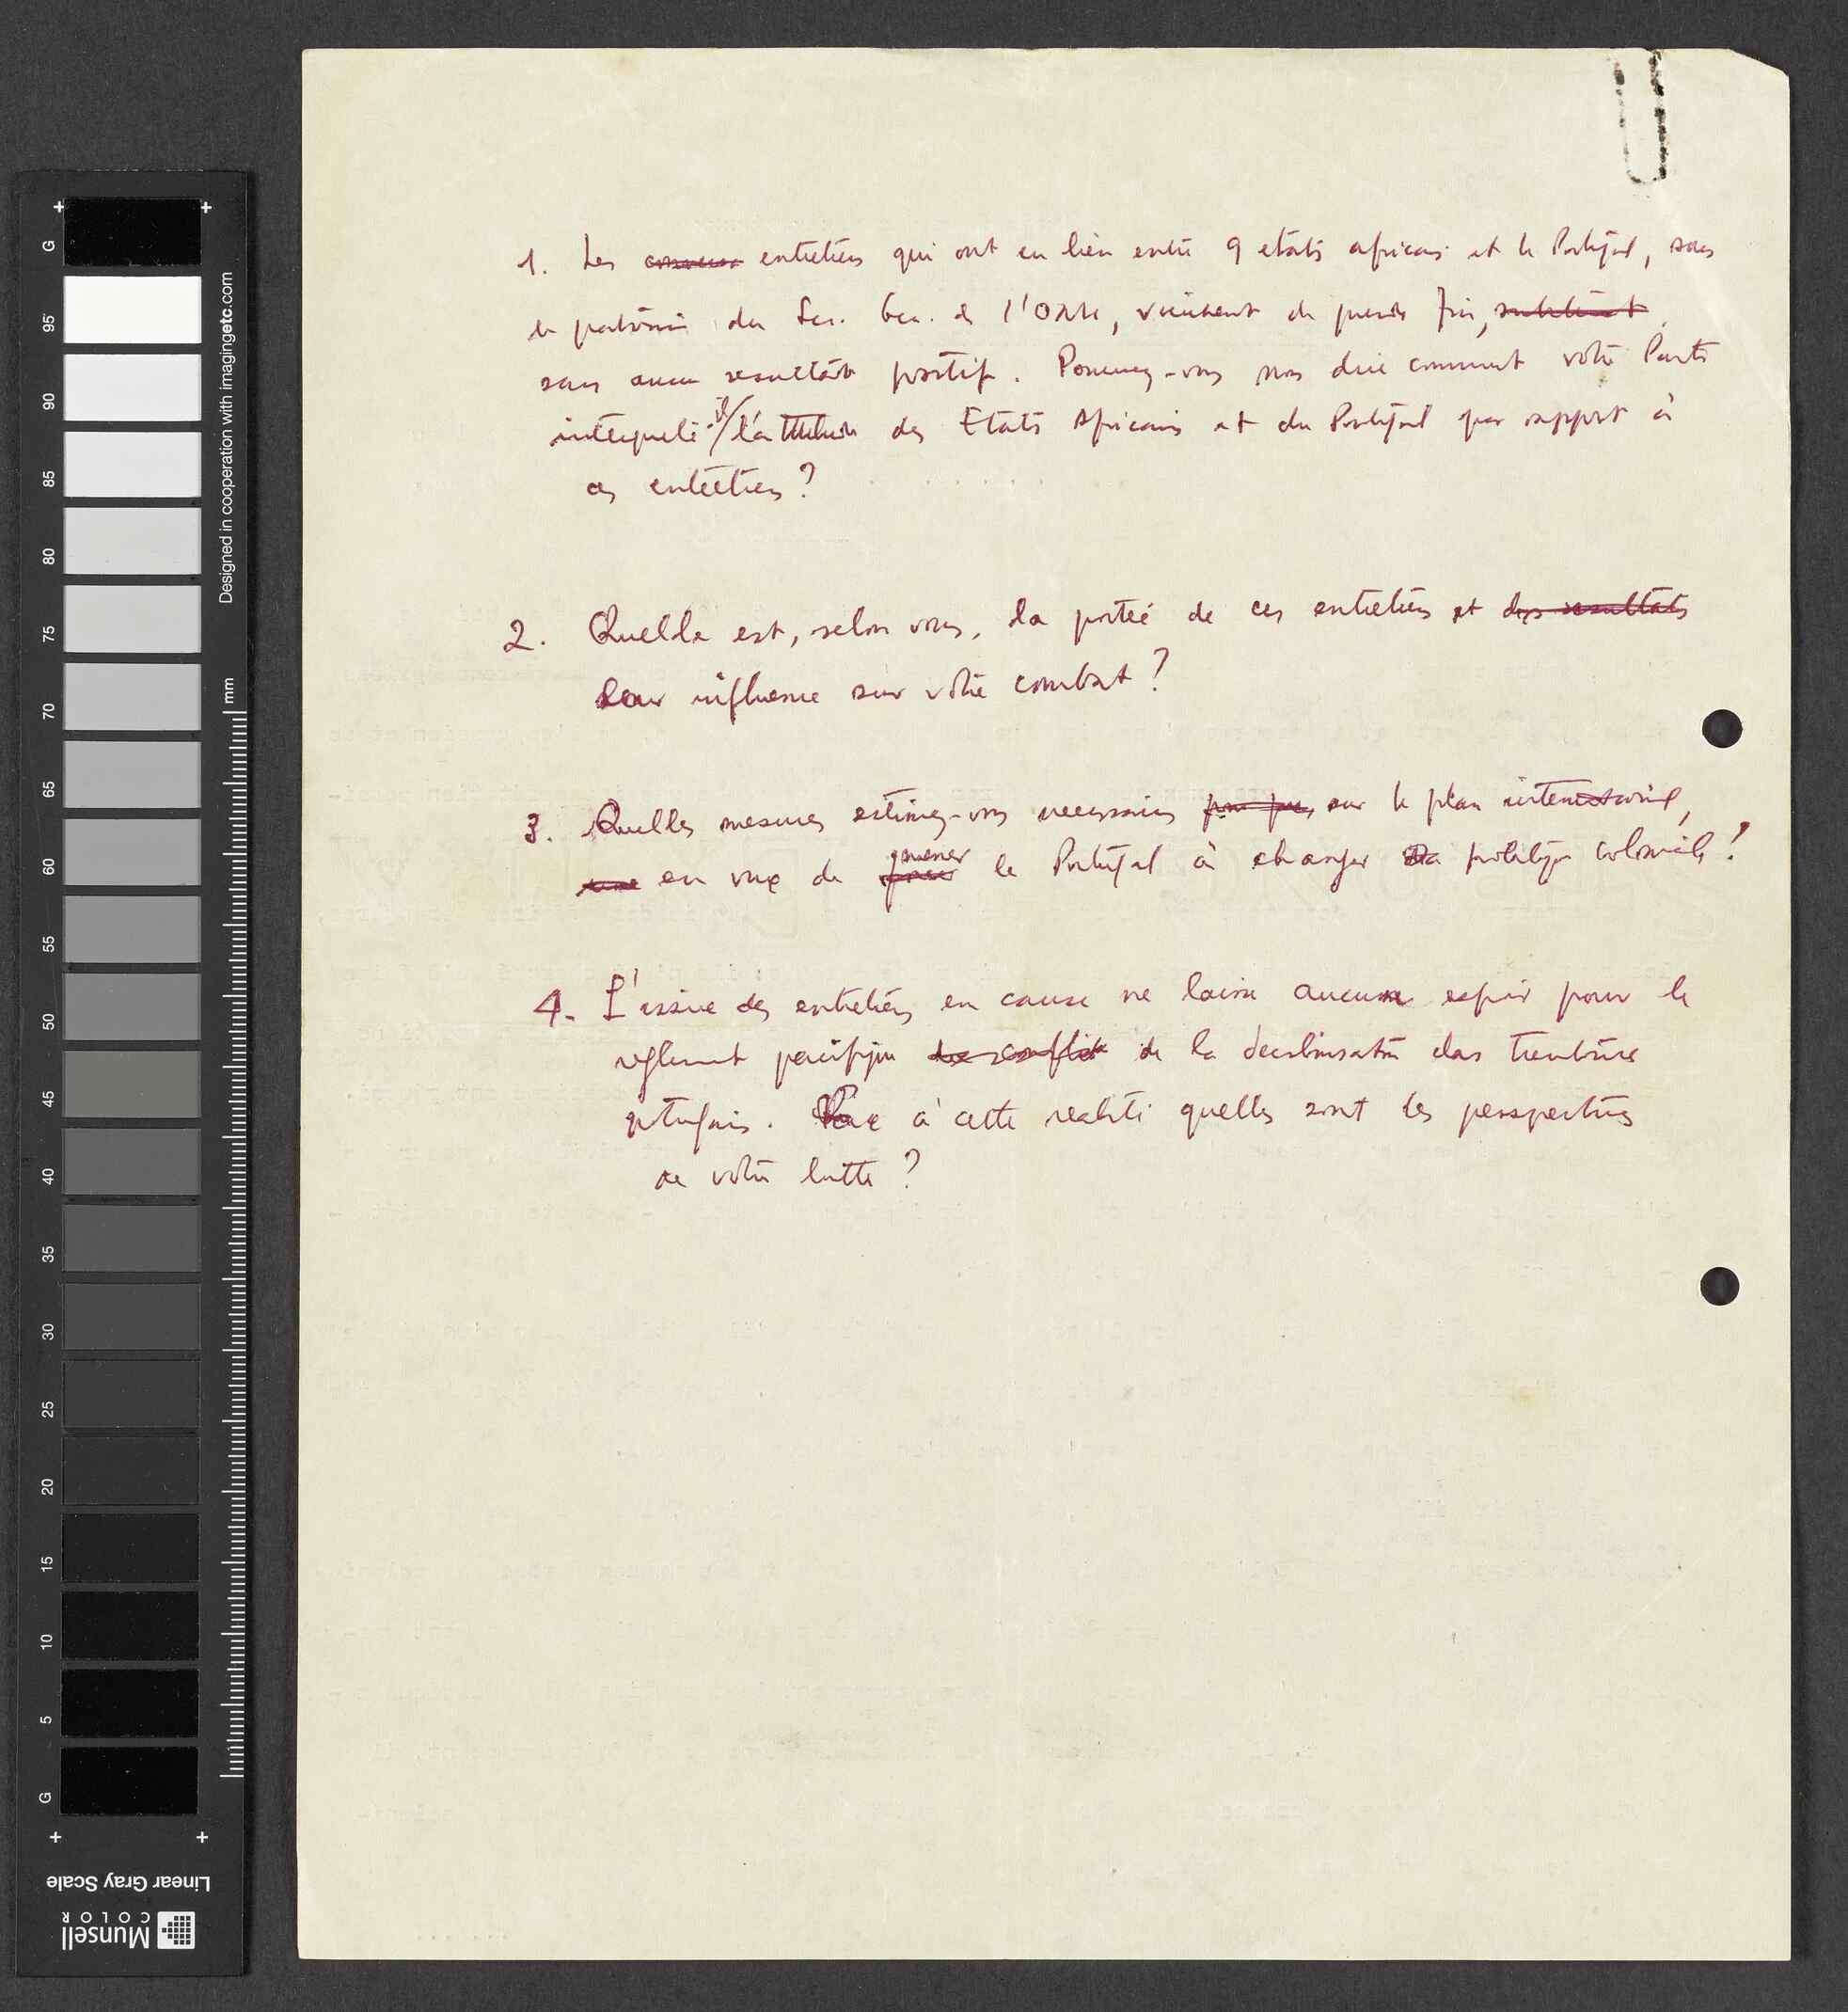 1. Les entretiens qui ont eu lieu entre 9 etats africains et le Portugal, sous
le patronnage du Sec. Gen. de l'ONU, viennent de prendre fin,
sans aucun resultat positif. Pouvez-vous nous dire comment votre Parti
interprete-il l'attitude des Etats Africains et du Portugal par rapport à
ces entretiens?
2. Quelle est, selon vous, la porteé de ces entretiens et des resultats
leur influence sur votre combat?
3. Quelles mesures estimez-vous necessaires sur le plan international,
en vue de amener le Portugal à changer sa politique coloniale?
4. L'issue des entretiens en cause ne laisse aucun espoir pour le
reglement pacifique du conflit de la decolonisation des territoires
portugais. Face à cette realité quelles sont les perspectives
de votre lutte?
G
95
90
85
80
75
70
65
60
55
50
45
40
35
30
25
20
15
10
5
G
mm
Designed in cooperation with imagingetc.com
Linear Gray Scale
Munsell
COLOR